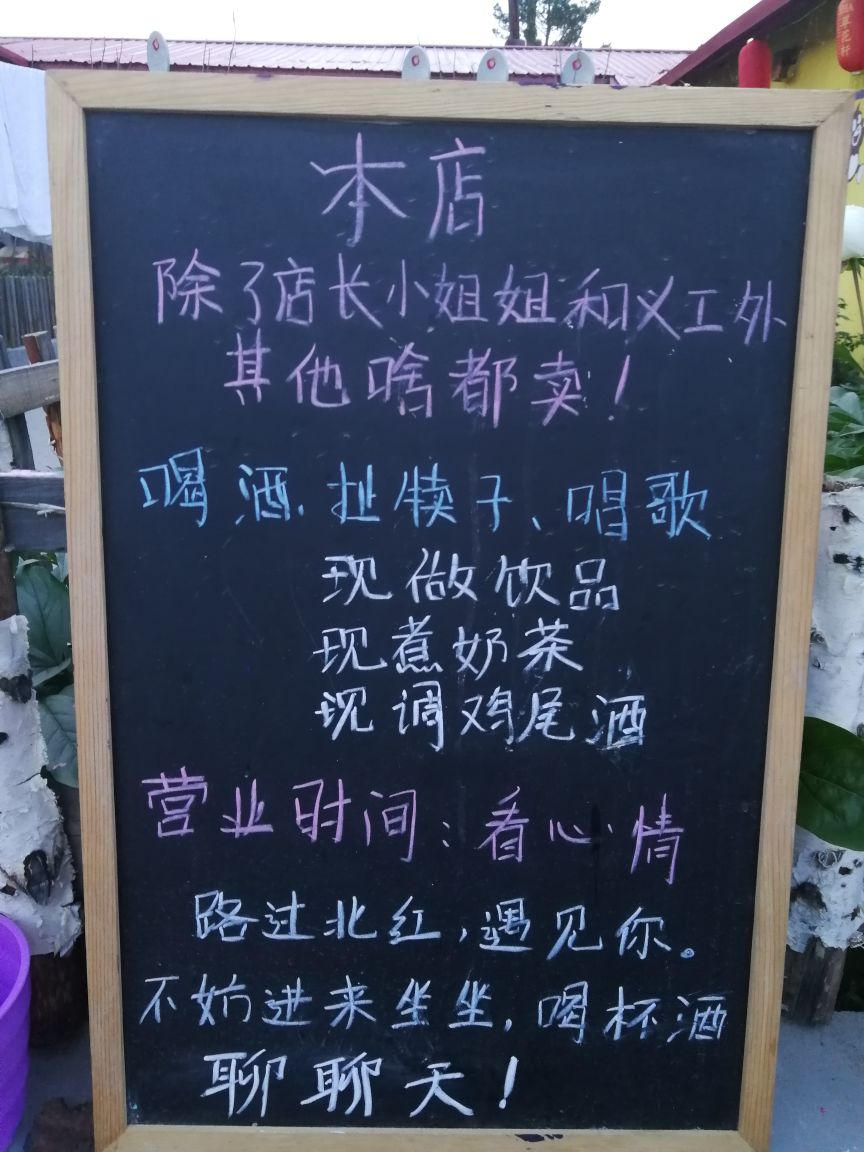 本店
除了店长小姐姐和义工外
其他啥都卖！
喝酒、扯犊子、唱歌
现做饮品
现煮奶茶
现调鸡尾酒
营业时间：看心情
路过北红，遇见你。
不妨进来坐坐，喝杯酒
聊聊天！